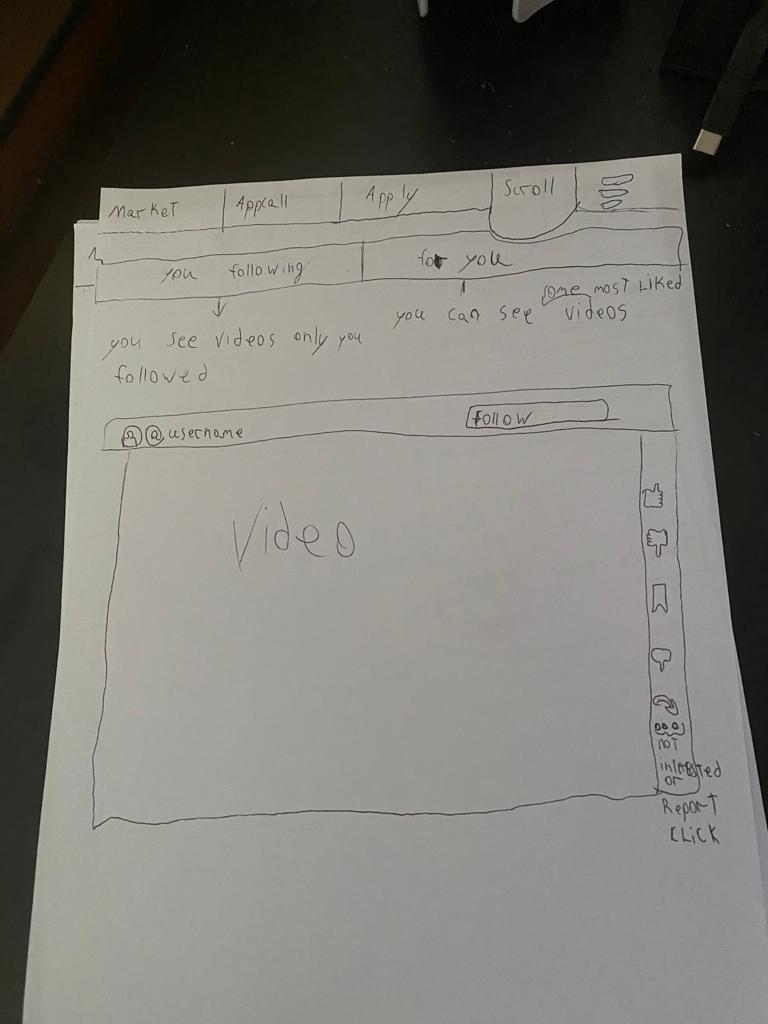 Market Appcall Apply Scroll
you following for you
you see videos only you
followed
you can see some most liked
videos
@username follow
Video
not
interested
or
Report
CLiCK